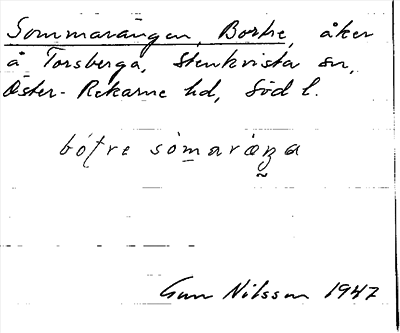 Sommarängen, Bortre, åker
å Torsberga, Stenkvista sn,
Öster-Rekarne hd, Söd l.
bótre sòmaräŋa
Gun Nilsson 1947